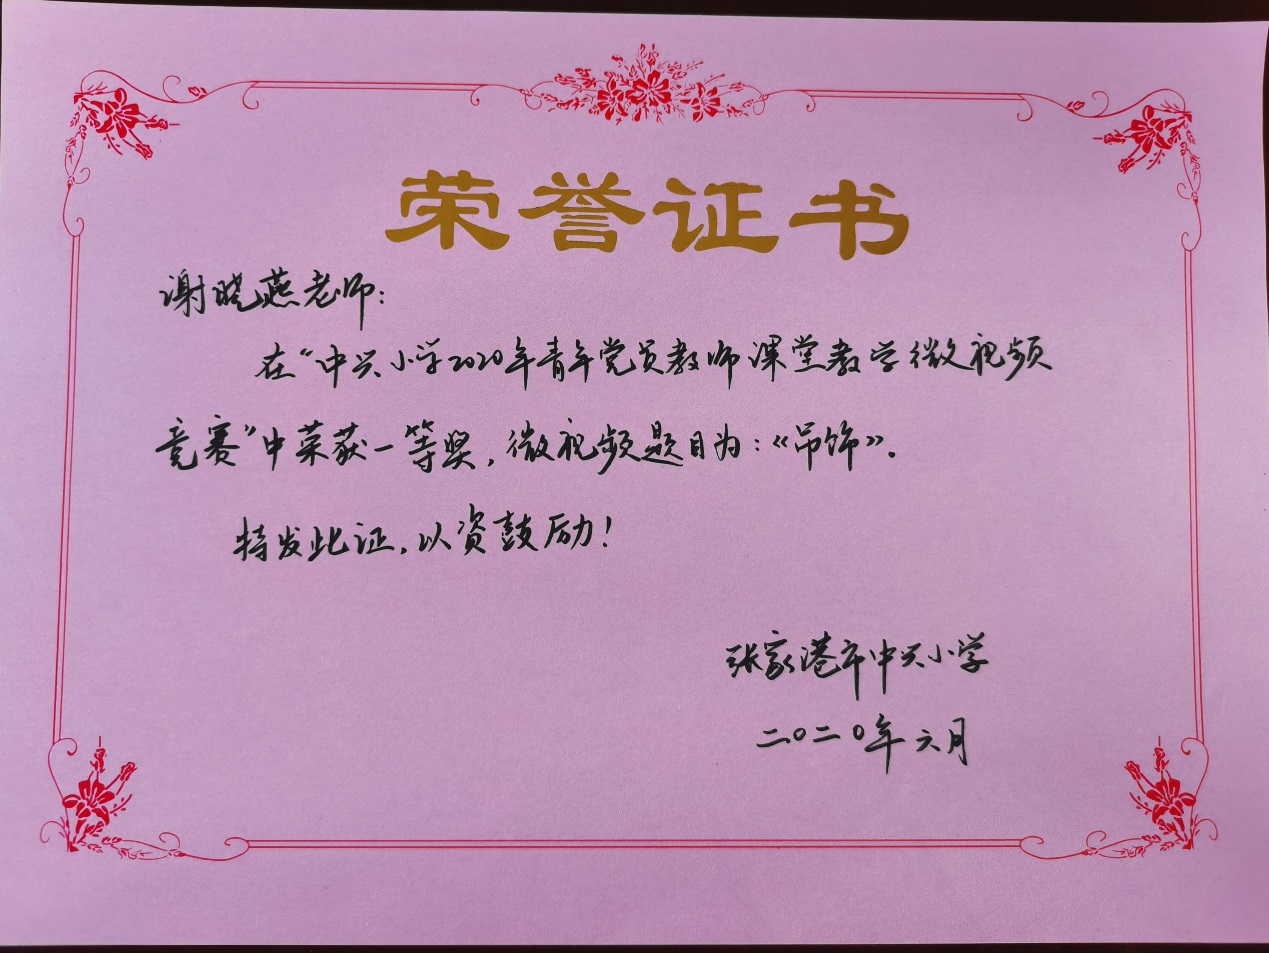 荣誉证书
谢晓燕老师:
在“中兴小学2020年青年党员教师课堂教学微视频
竞赛”中荣获一等奖,微视频题目为:《吊饰》。
特发此证,以资鼓励!
张家港市中兴小学
二〇二〇年六月